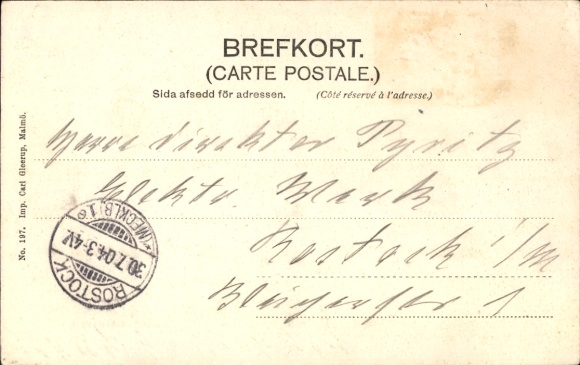 BREFKORT.
(CARTE POSTALE.)
Sida afsedd för adressen. (Côté réservé à l'adresse.)
Herre Direktor Pyritz
Elektr. Werk
Rostock i/M
Blücherstr 1
ROSTOCK
30.7.04.3-4V.
*(MECKLB)1e
No. 197. Imp. Carl Gleerup, Malmö.